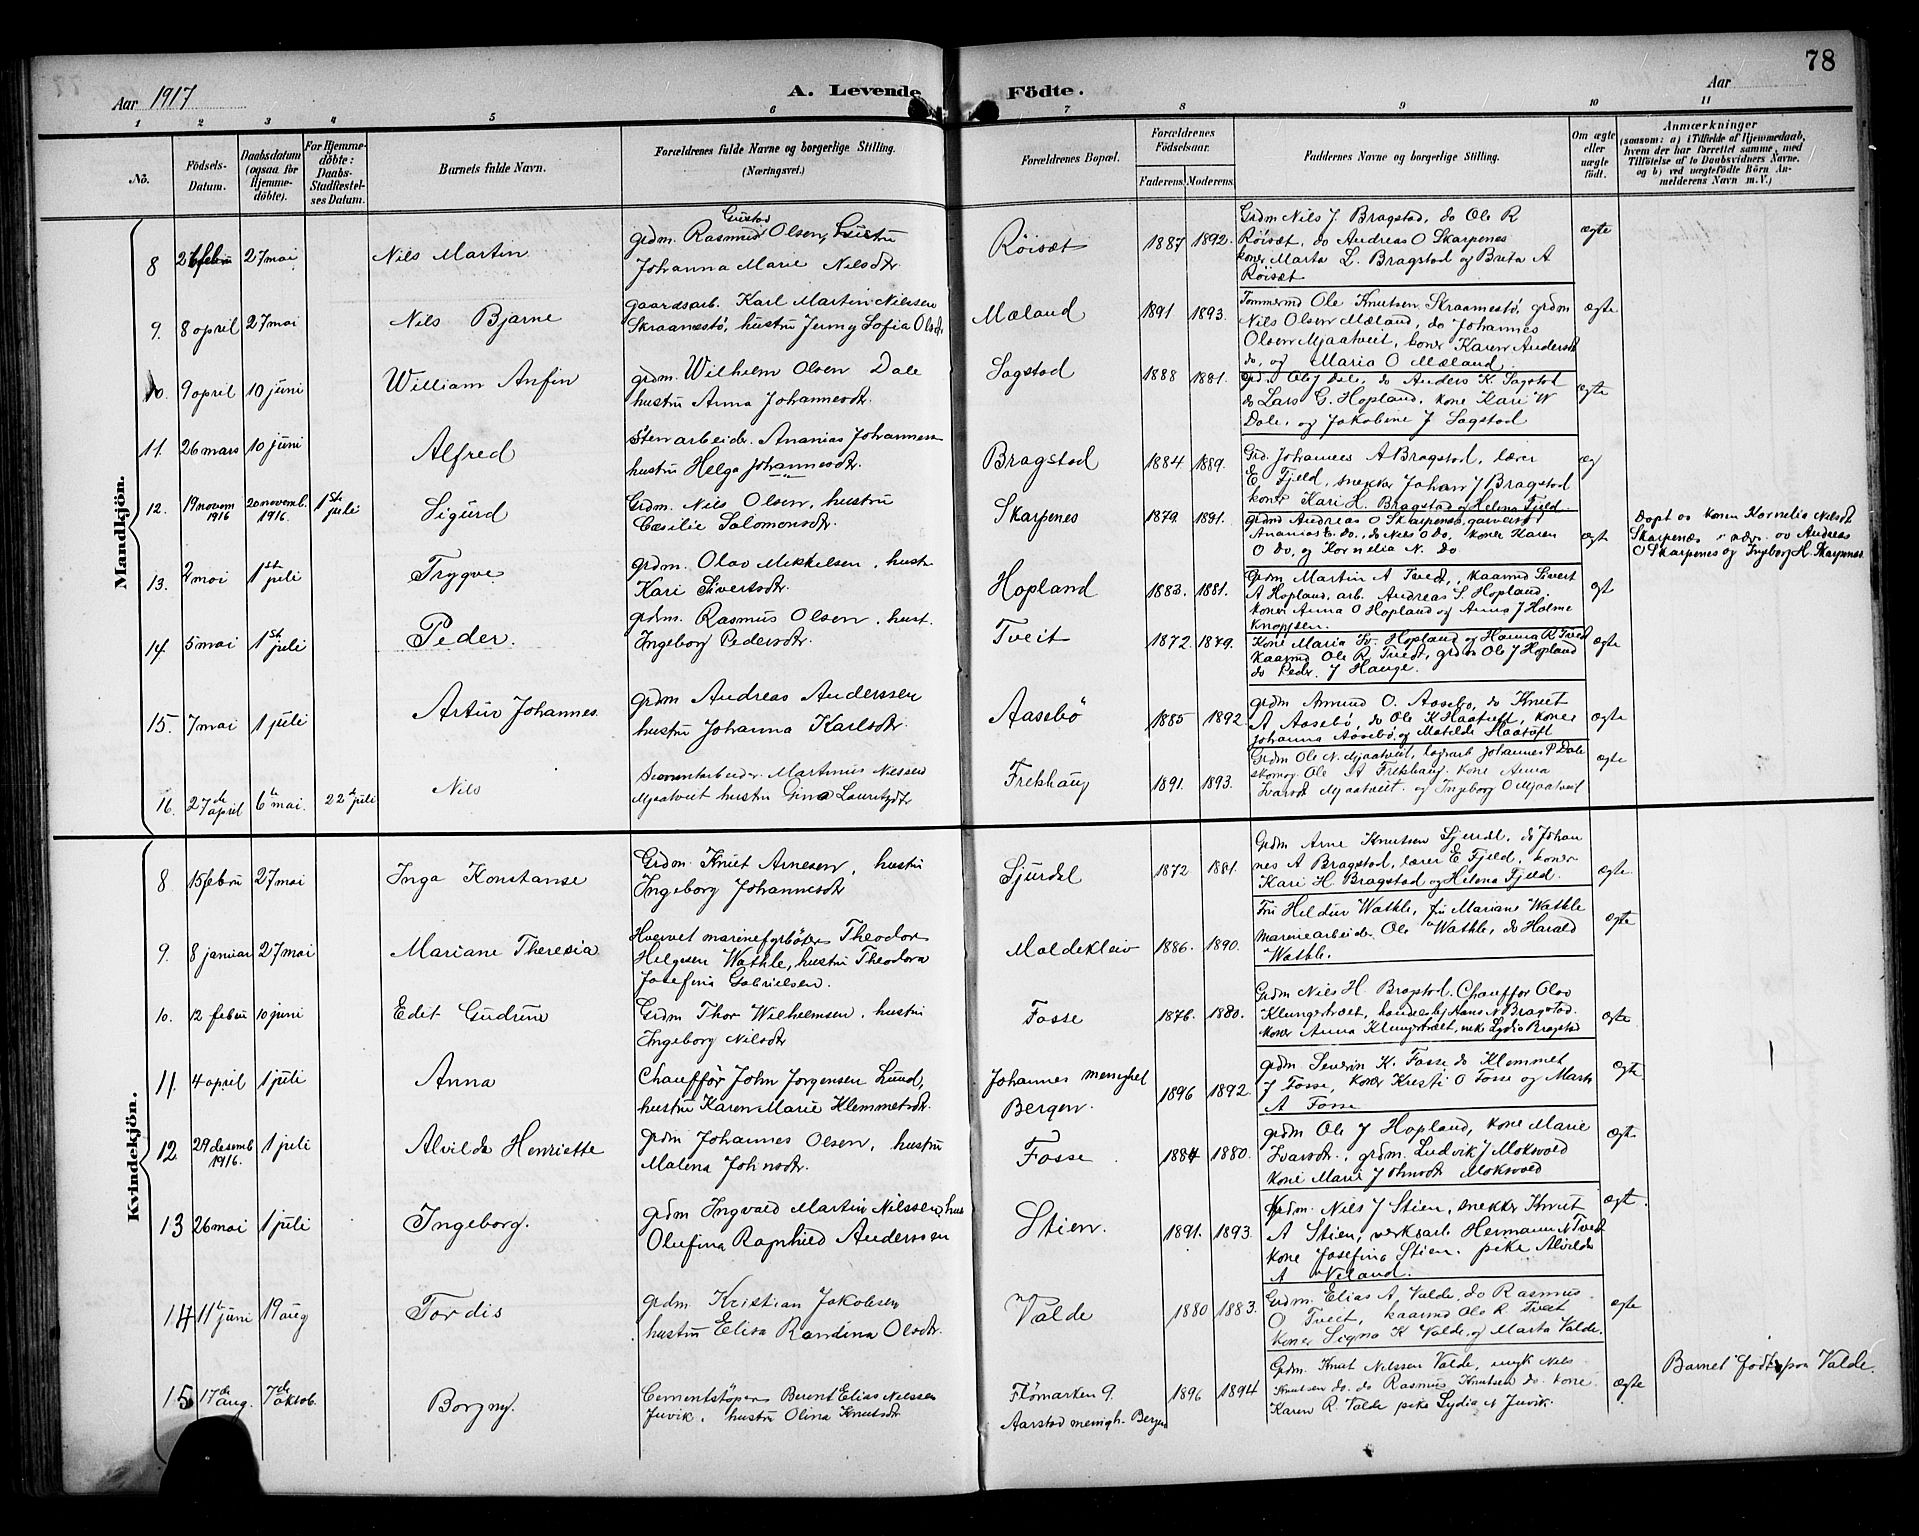 78
Aar 1917
A. Levende Födte.
Aar
1 2 3 4 5 6 7 8 9 10 11
No.
Födsels-
Datum.
Daabsdatum
(ogsaa for
Hjemme-
döbte).
For Hjemme-
döbte:
Daabs-
Stadfæstel-
ses Datum.
Barnets fulde Navn.
Forældrenes fulde Navne og borgerlige Stilling.
(Næringsvei.)
Forældrenes Bopæl.
Forældrenes
Födselsaar.
Faderens. Moderens.
Faddernes Navne og borgerlige Stilling.
Om ægte
eller
uægte
födt.
Anmærkninger
(saasom: a) i Tilfælde af Hjemmedaab,
hvem der har forrettet samme, med
Tilföielse af to Daabsvidners Navne.
og b) ved uægtefödte Börn An-
melderens Navn m.V.)
Mandkjön.
8 27 mai Nils Martin
grdm. Rasmus Gustad Olsen, hustru
Johanna Marie Nilsdtr
Röisæt 1887 1892.
Grdm Nils J. Bragstad, do Ole R
Röisæt, do Andreas O Skarpenes
koner Marta L. Bragstad og Breta A
Röisæt
ægte
9. 8 april 27 mai Nils Bjarne
gaardsarb. Karl Martin Nilssen
Skraamestö, hustru Jenny Sofia Olsdtr
Mæland 1891 1893.
Tömmermd Ole Knutsen Skraamestö, grdm
Nils Olsen Mæland, do Johannes
Olsen Mjaatveit, koner Karen Andersdtr
do, og Maria O Mæland.
ægte
10. 9 april 10 juni William Anfin
grdm. Wilhelm Olsen Dale
hustru Anna Johannesdtr.
Sagstad 1888 1881.
grd. Ole J Dale, do Anders K Sagstad
do Lars G. Hopland, kone Kari W
Dale, og Jakobine J Sagstad
ægte
11. 26 mars 10 juni Alfred
Stenarbeidr. Ananias Johannessen
hustru Helga Johannesdtr.
Bragstad 1884 1889.
Grd. Johannes A Bragstad, lærer
E Fjeld, snekker Johan J Bragstad
koner Kari H. Bragstad og Helena Fjeld.
æg
12. 19 novem 1916 20 novemb. 1916. 1st juli Sigurd
Grdm. Nils Olsen, hustru
Cæsilie Salomonsdtr.
Skarpenes 1879. 1891.
grdmd Andreas O Skarpenes, garverst
Ananias E. do, do Nils O do, koner Karen
O do, og Kornelia N. do
ægt
Döpt av konen Kornelia Nilsdt
Skarpenæs i nærv. av Andreas
O Skarpenes og Ingeborg H. Skarpenes
13. 2 mai 1st juli Trygve
grdm. Olav Mikkelsen, hustr
Kari Sivertsdtr.
Hopland 1883. 1881.
Grdm Martin A Tvedt, kaarmd Sivert
A Hopland, arb. Andreas S. Hopland.
koner Anna O Hopland og Anna J Holme
Knopfsen.
gt
14. 5 mai 1st juli Peder.
grdm. Rasmus Olsen, hust.
Ingeborg Pedersdtr.
Tveit 1872. 1879.
Kone Maria Sv. Hopland og Hanna R Tvedt
kaarmd Ole R Tvedt, grdm Ole J Hopland
do Peder J Hauge.
ægte
15. 7 mai 1 juli Artur Johannes.
grdm Andreas Anderssen
hustru Johanna Karlsdtr.
Aasebö 1885 1892
grdm Amund O. Aasebö, do Knut
A Aasebö, do Ole K Haatuft, koner
Johanna Aasebö, og Matilde Haatuft
ægte
16. 27de april 6te mai. 22de juli Nils
Diamantarbeider Martinus Nilssen
Mjaatveit hustru Gina Lauritzdtr
Frekhaug 1891. 1893.
Grdm Ole N. Mjaatveit, lagrarb Johannes P. Dale
skomag. Ole A Frekhaug. kone Anna
Ivarsdt Mjaatveit. og Ingeborg O Mjaatveit
ægte
Kvindekjön.
8. 15 febru 27 mai Inga Konstanse
Grdm. Knut Arnesen, hustru
Ingeborg Johannesdtr
Sjurdal 1872 1881.
Grdm Arne Knutsen Sjurdal, do Johan
nes A Bragstad, lærer E Fjeld, koner
Kari H. Bragstad og Helena Fjeld.
ægte.
9. 8 januar 27 mai Mariane Theresia
Hvervet marinefyrböter Theodor
Helgesen Wathle, hustru Theodora
Josefina Gabrielsen.
Moldekleiv 1886. 1890.
Fru Heldur Wathle, fru Mariane Wathle
Marinearbeider Ole Wathle, do Harald
Wathle.
ægte
10. 12 febru 10 juni Edit Gudrun
Grdm Thor Wilhelmsen, hustru
Ingeborg Nilsdtr
Fosse 1876. 1880.
Grdm Nils H. Bragstad. Chaufför Olav
Klungtveet, handelsbj Hans N Bragstad.
koner Anna Klungtveet, enke Lydia Bragstad
ægte
11 4 april 1 juli Anna
Chauffør John Jorgensen Lund,
hustru Karen Marie Klemmetsdtr.
Johannes menighet
Bergen. 1896 1892.
grdm Severin K. Fosse do Klemmet
J Fosse, koner Kresti O Fosse og Marta
A Fosse
ægte.
12 29 desemb 1916. 1 juli Alvilde Henriette
grdm Johannes Olsen, hustru
Malena Johnsdtr.
Fosse 1884 1880.
grdm Ole J Hopland, kone Marie
Ivarsdtr., grdm. Ludvik J Mokvold
kone Marie Johnsdtr Mokvold
ægte
13 26 mai 1 juli Ingeborg.
grdm Ingvald Martin Nilssen, hus
Olufina Ragnhild Anderssen
Stien. 1891. 1893.
Grdm. Nils J Stien, snekker Knut
A Stien, verksarb. Hermann N Tvedt
kone Josefina Stien. pike Alvilde
A Neland.
ægte.
14 11te juni 19 aug Tordis
grdm. Kristian Jakobsen
hustru Elisa Randina Olsdtr.
Valde 1880 1883.
Grdm. Elias A, Valde, do Rasmus
O Tveit, kaarmd Ole R. Tveit
koner Signa K Valde, og Marta Valde.
ægte
15 17de aug. 7de oktob. Borgny.
Cementstöper Berent Elias Nilssen
Juvik, hustru Olina Knutsdtr
Flömarken 9.
Aarstad menigh. Bergen 1896 1894
Grdm. Knut Nilssen Valde, ungk Nils
Knutsen do. do Rasmus Knutsen do. kone
Karen R. Valde pike Lydia N Juvik.
ægte
Barnet födt paa Valde.